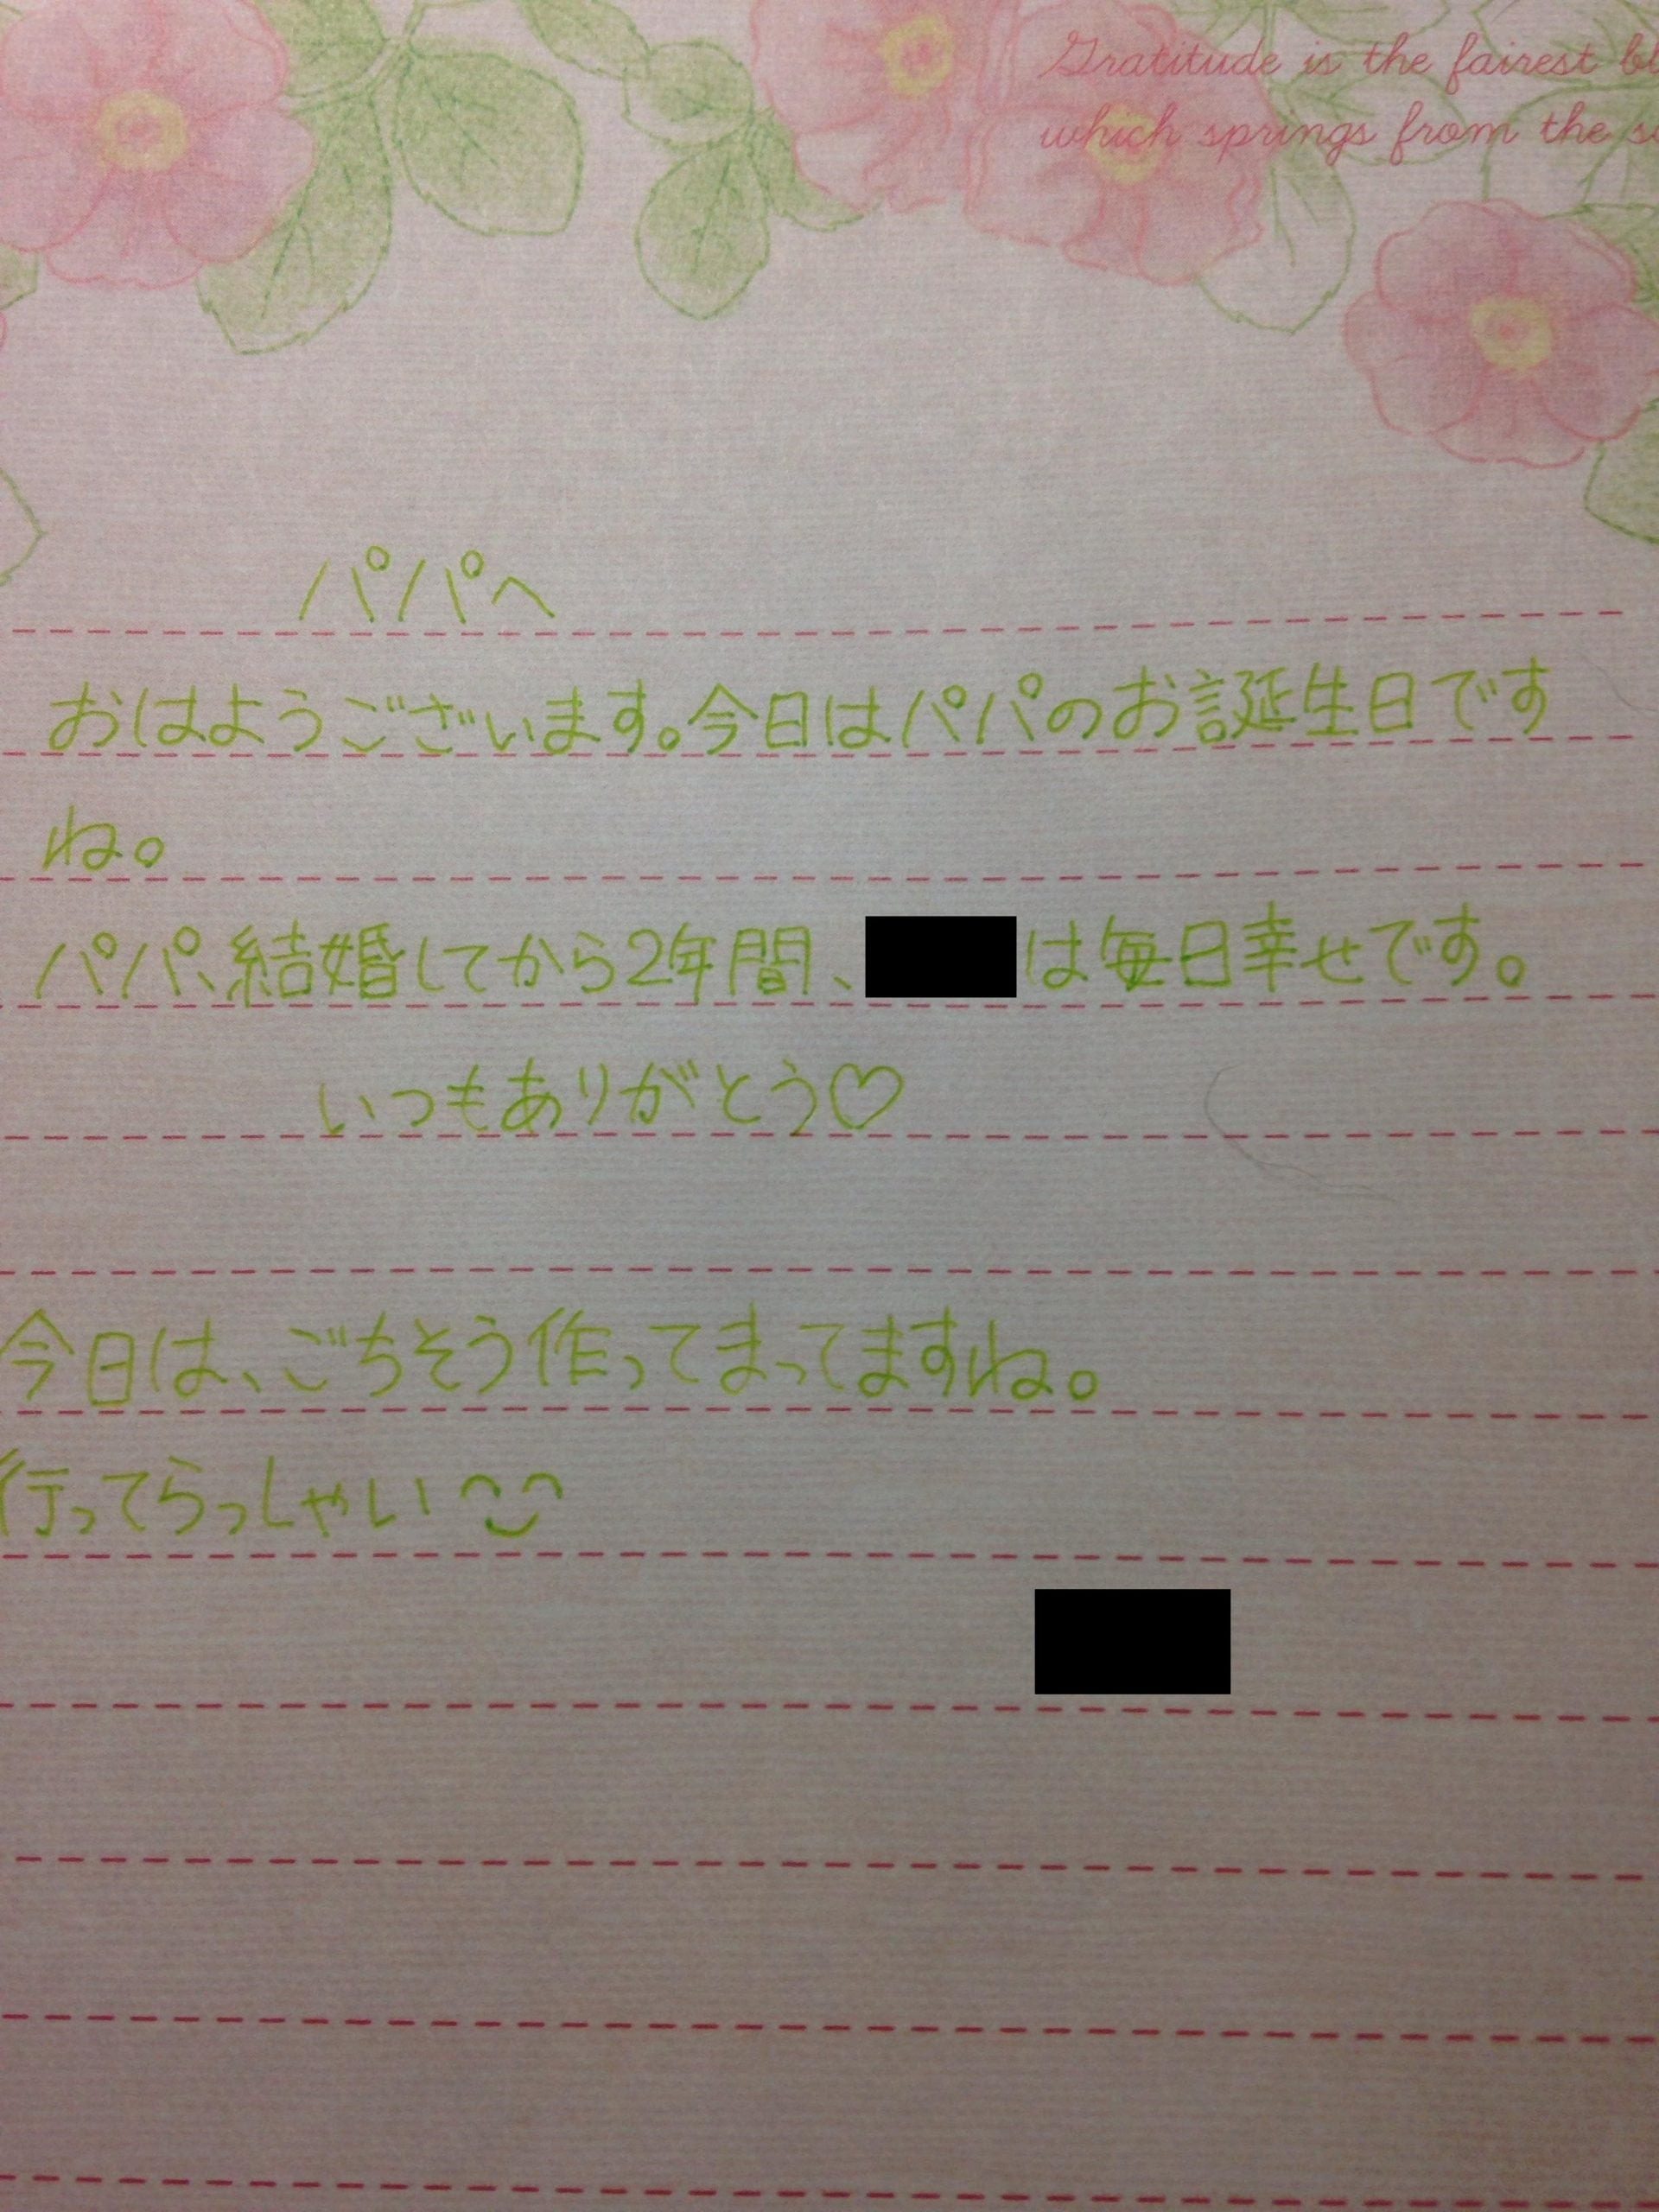 Gratitude is the fairest
which springs from the
パパへ
おはようございます。今日はパパのお誕生日です
ね。
パパ、結婚してから2年間、は毎日幸せです。
いつもありがとう♡
今日は、ごちそう作ってまってますね。
行ってらっしゃい